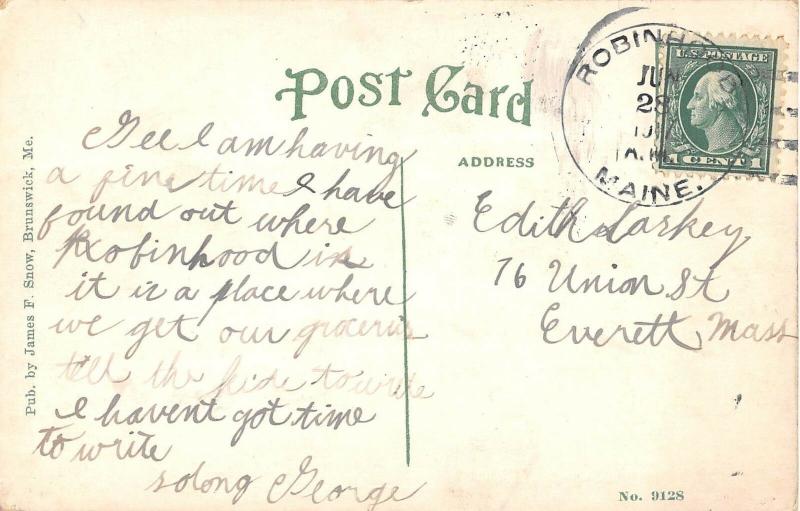 Post Card
ADDRESS
Gee I am having
a fine time I have
found out where
Robinhood is
it is a place where
we get our groceries
tell the kids to write
I havent got time
to write
so long George
Edith Laskey
76 Union St
Everett, Mass
ROBINHOOD
JUN
28
A.M.
MAINE.
U.S. POSTAGE
1 CENT 1
Pub. by James F. Snow, Brunswick, Me.
No. 9128